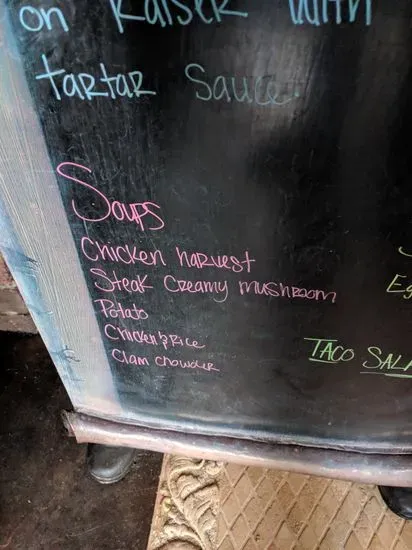 on Kaiser with
tartar Sauce.
Soups
Chicken harvest
Steak Creamy mushroom
Potato
Chicken & Rice
Clam chowder
TACO SAL